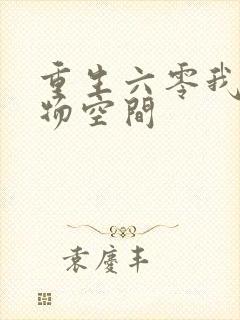 重生六零我
物空間
袁慶丰